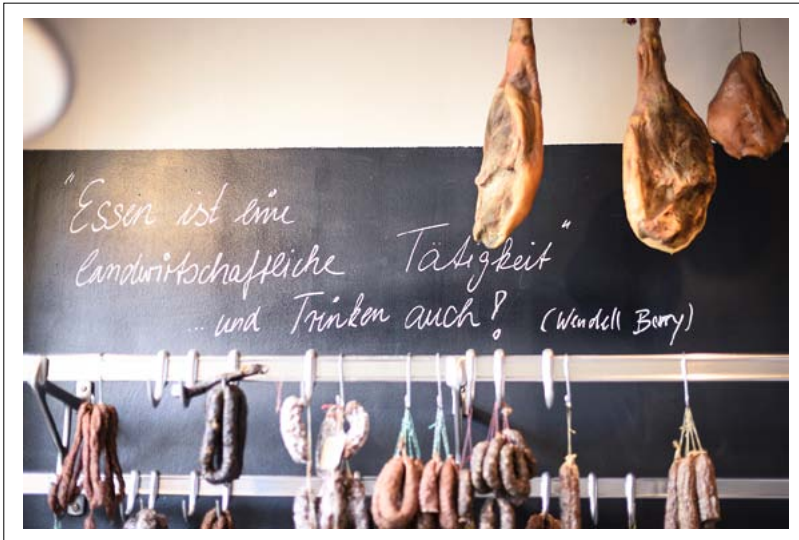 "Essen ist eine
landwirtschaftliche Tätigkeit"
...und Trinken auch! (Wendell Berry)